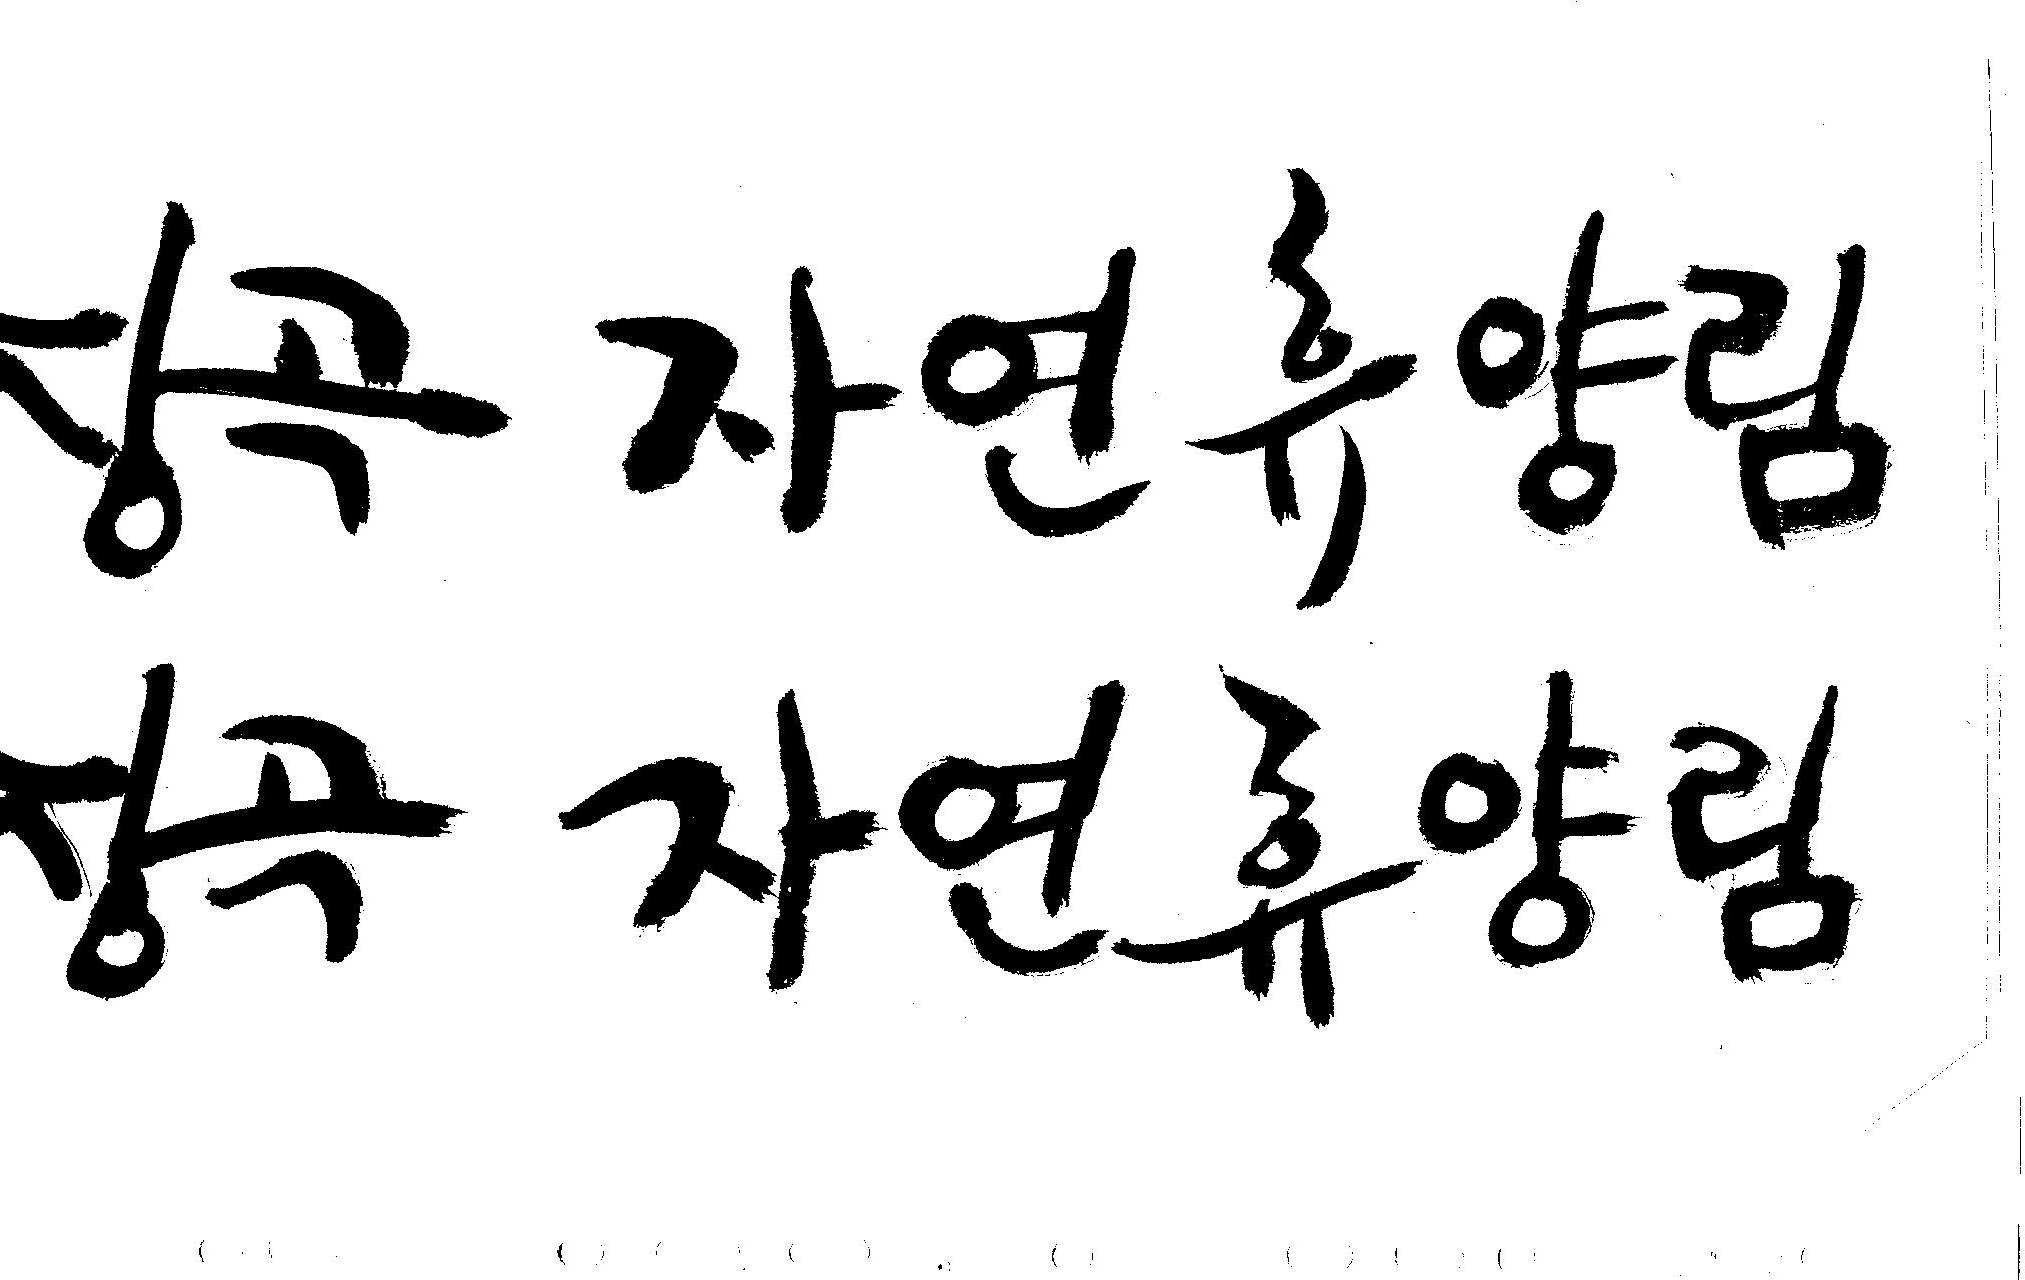 장곡 자연휴양림
장곡 자연휴양림